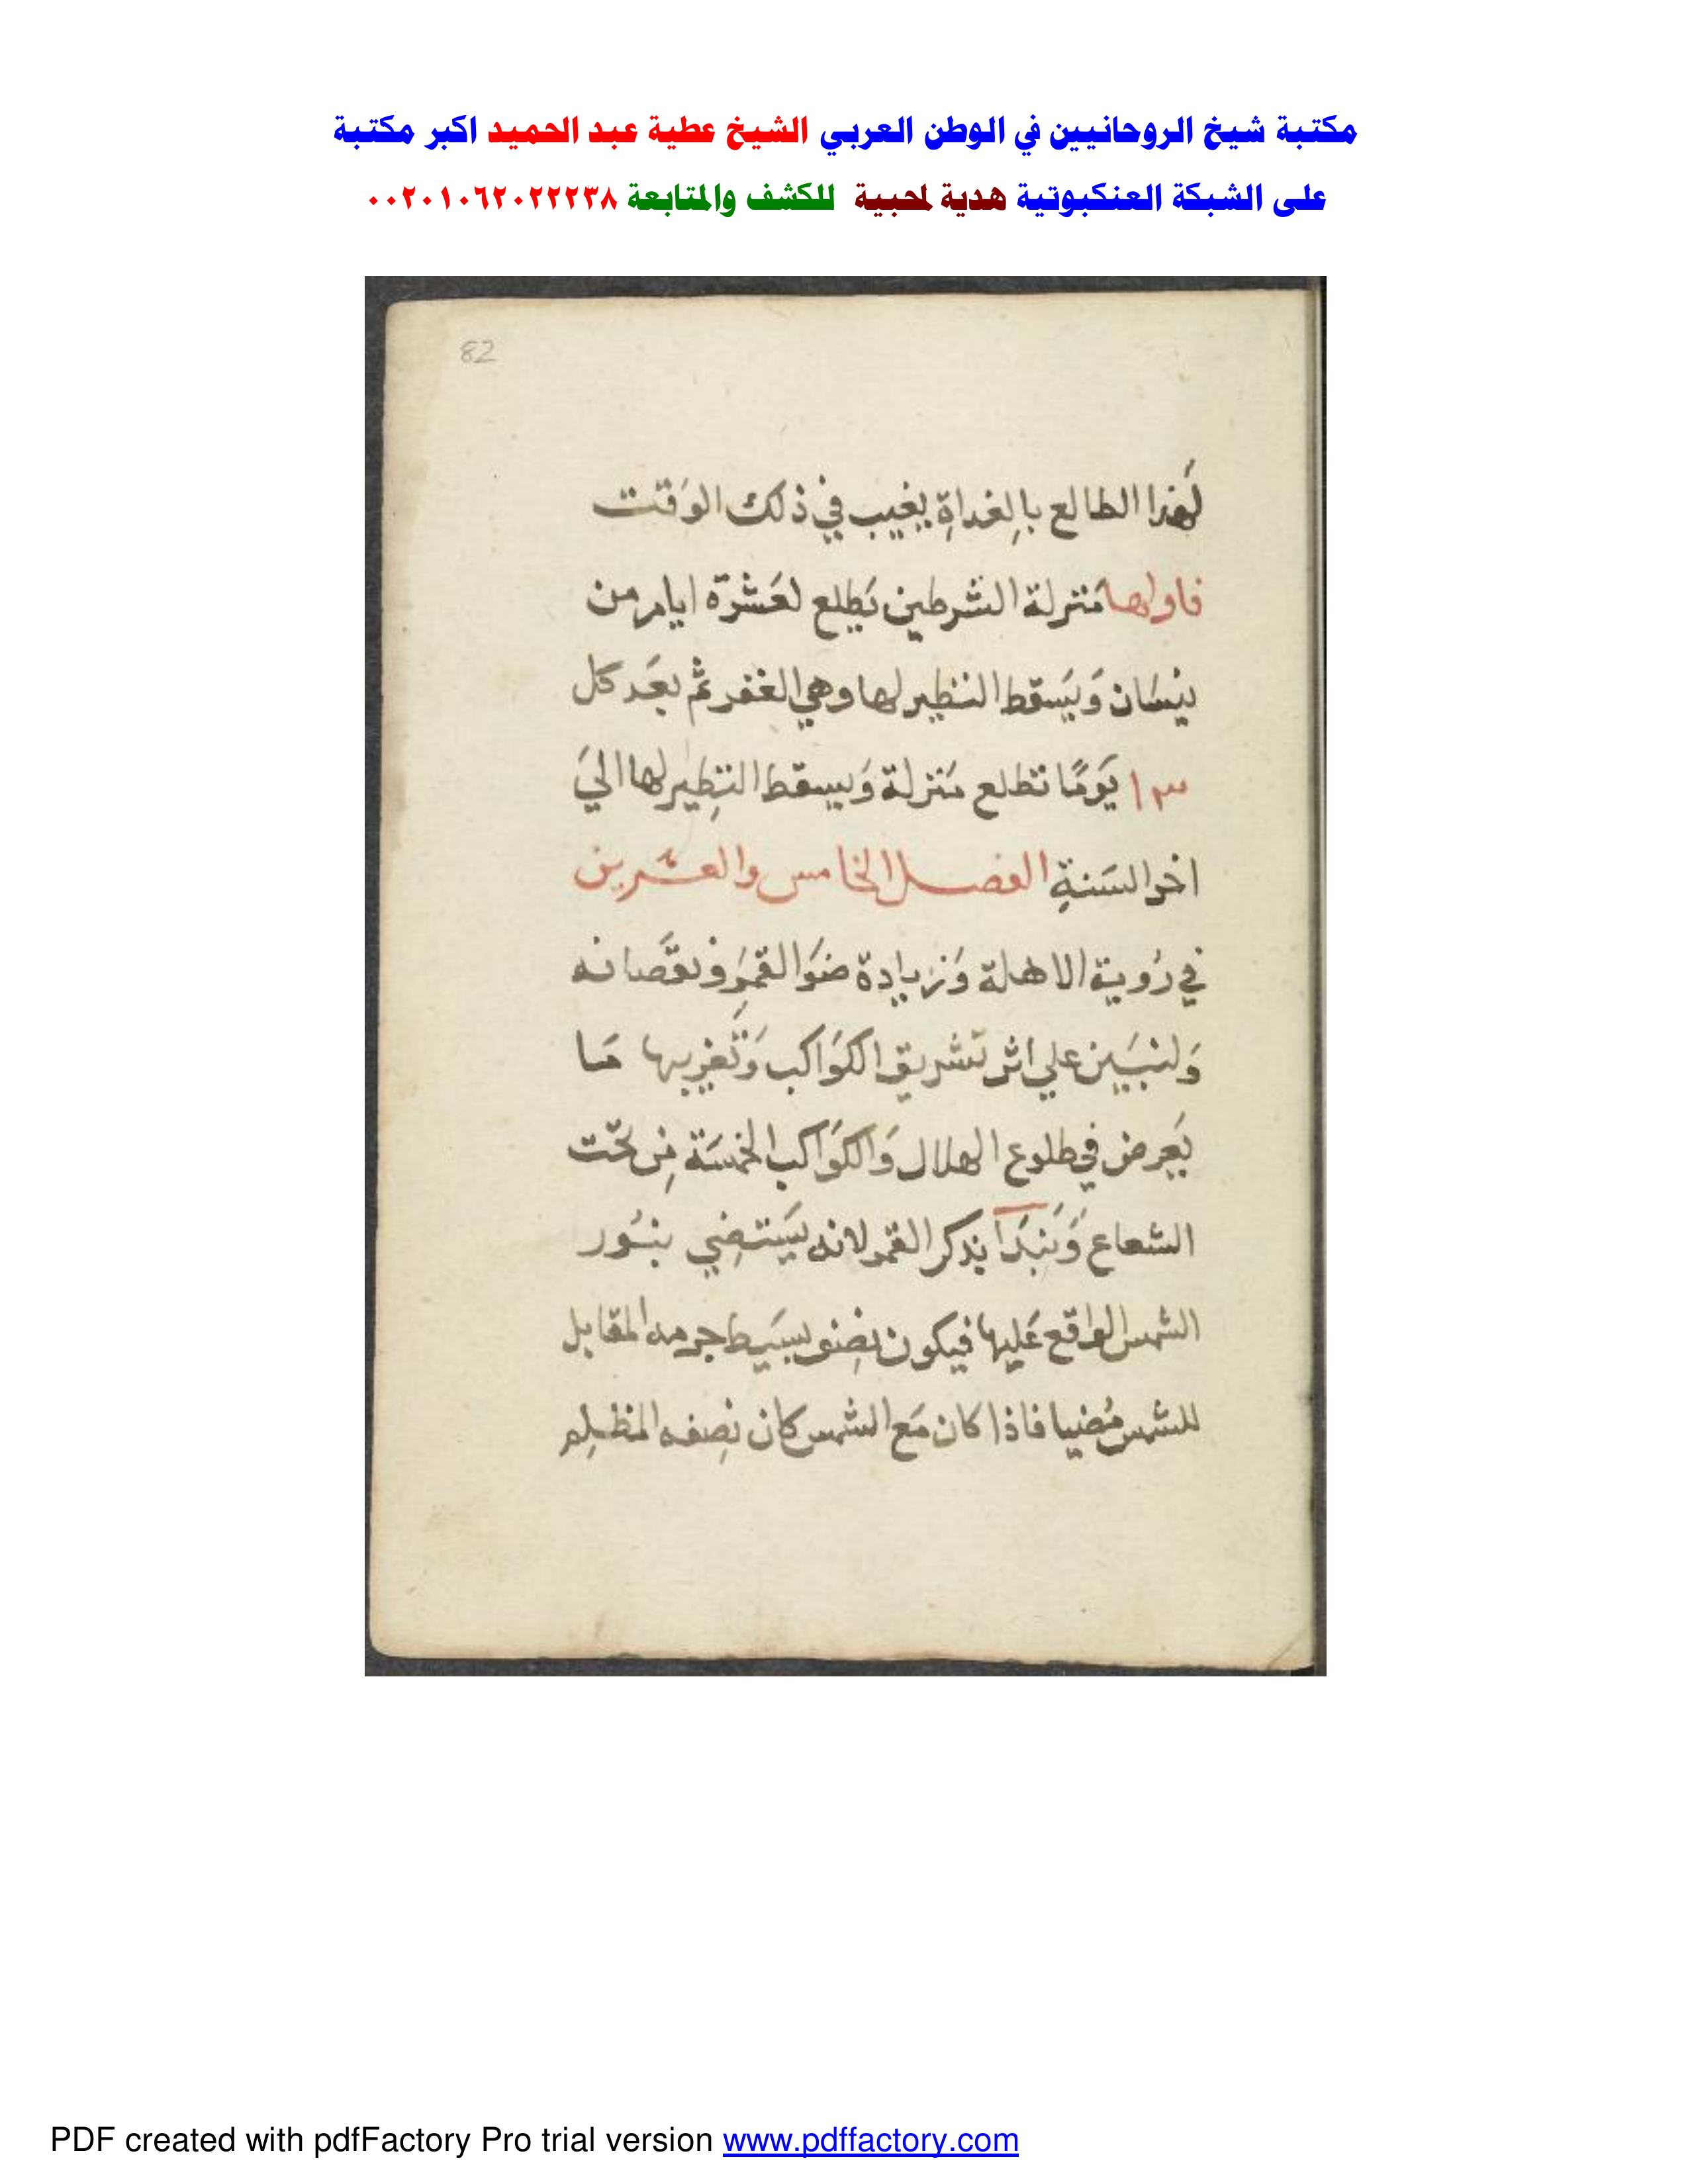 مكتبة شيخ الروحانيين في الوطن العربي الشيخ عطية عبد الحميد اكبر مكتبة
على الشبكة العنكبوتية هدية لمحبية للكشف والمتابعة ٠٠٢٠١٠٦٢٠٢٢٢٣٨
82
لهَذا الطالع بالِغداةِ يغيب في ذلك الوَقت
فاولها مَنزلة الشرطين يَطلع لعَشرَة ايام من
نيسَان وَيَسقط النظير لها وهي الغفر ثم بعَد كل
١٣ يَومًا تطلع مَنزلة وَيسقط النظِير لها اليَ
اخر السَنةِ الفصل الخامس والعشرين
في رُوية الاهلة وَزيادة ضوَ القمَر ونقصَانه
وَلنبَيِن علي اثر تَشريق الكوَاكب وَتَغريبها مَا
يَعرض في طلوع الهلال وَالكوَاكب الخمسَة مِن تحَت
الشعاع وَنَبدَا بذكر القمر لانه يَستضي بنوُر
الشمس الواقع عَليها فيكون بسَيط جرمه المقابل
للشمس مُضيا فاذا كان مَع الشمس كان نِصفه المظلِم
PDF created with pdfFactory Pro trial version www.pdffactory.com